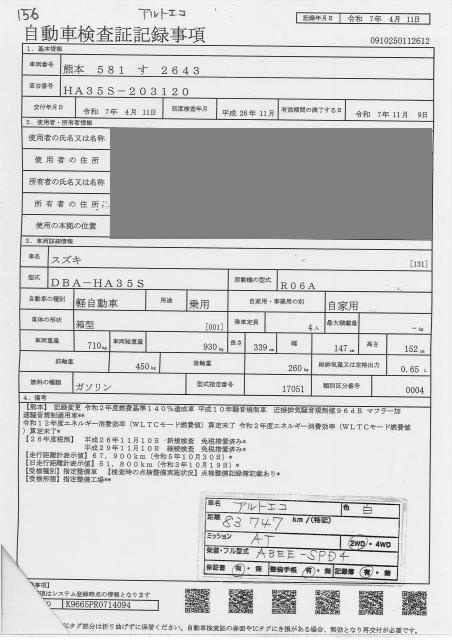 156
アルトエコ
記録年月日 令和 7年 4月 11日
自動車検査証記録事項
0910250112612
1. 基本情報
車両番号 熊本 581 す 2643
車台番号 HA35S-203120
交付年月日 令和 7年 4月 11日 初度検査年月 平成 26年 11月 有効期間の満了する日 令和 7年 11月 9日
2. 使用者・所有者情報
使用者の氏名又は名称
使用者の住所
所有者の氏名又は名称
所有者の住所
使用の本拠の位置
3. 車両詳細情報
車名 スズキ [131]
型式 DBA-HA35S 原動機の型式 R06A
自動車の種別 軽自動車 用途 乗用 自家用・事業用の別 自家用
車体の形状 箱型 [001] 乗車定員 4人 最大積載量 -kg
車両重量 710kg 車両総重量 930kg 長さ 339cm 幅 147cm 高さ 152cm
前軸重 450kg 後軸重 260kg 総排気量又は定格出力 0.65 L
燃料の種類 ガソリン 型式指定番号 17051 類別区分番号 0004
4. 備考
【熊本】 記録変更 令和2年度燃費基準140%達成車 平成10年騒音規制車 近接排気騒音規制値96dB マフラー加
速騒音規制適用車**
令和12年度エネルギー消費効率(WLTCモード燃費値)算定未了 令和2年度エネルギー消費効率(WLTCモード燃費値
)算定未了*
【26年度税制】 平成26年11月10日 新規検査 免税措置済み**
平成29年11月10日 継続検査 免税措置済み*
【走行距離計表示値】67,900km(令和5年10月30日)*
【旧走行距離計表示値】51,800km(令和3年10月19日)*
【受検種別】指定整備車 【検査時の点検整備実施状況】点検整備記録簿記載あり*
【受検形態】指定整備工場**
車名 アルトエコ 色 白
距離 83747 km/(特記)
ミッション AT 2WD・4WD
架装・フル型式 ABEE-SPD4
保証書 有・無 整備手帳 有・無 記録簿 有・無
事項】
はシステム登録時点の情報となります
K9665PR0714094
ICタグ部分は折り曲げずに保管ください。自動車検査証の券面やICタグにき損がある場合、無効となり再交付が必要です。